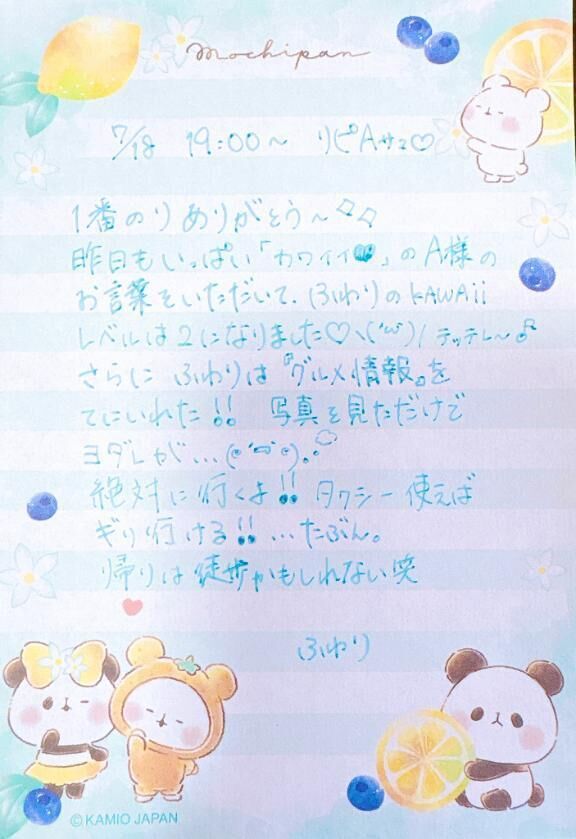 mochipan
7/18 19:00～ リピAサマ♡
1番のりありがとう～
昨日もいっぱい「カワイイ♥」のA様の
お言葉をいただいて、ふわりのKAWAii
レベルは2になりました♡ヽ('ω')/ テッテレ～♪
さらに ふわりは『グルメ情報』を
てにいれた!! 写真を見ただけで
ヨダレが…
絶対に行くよ!! タクシー使えば
ギリ行ける!! …たぶん。
帰りは徒歩かもしれない笑
ふわり
©KAMIO JAPAN